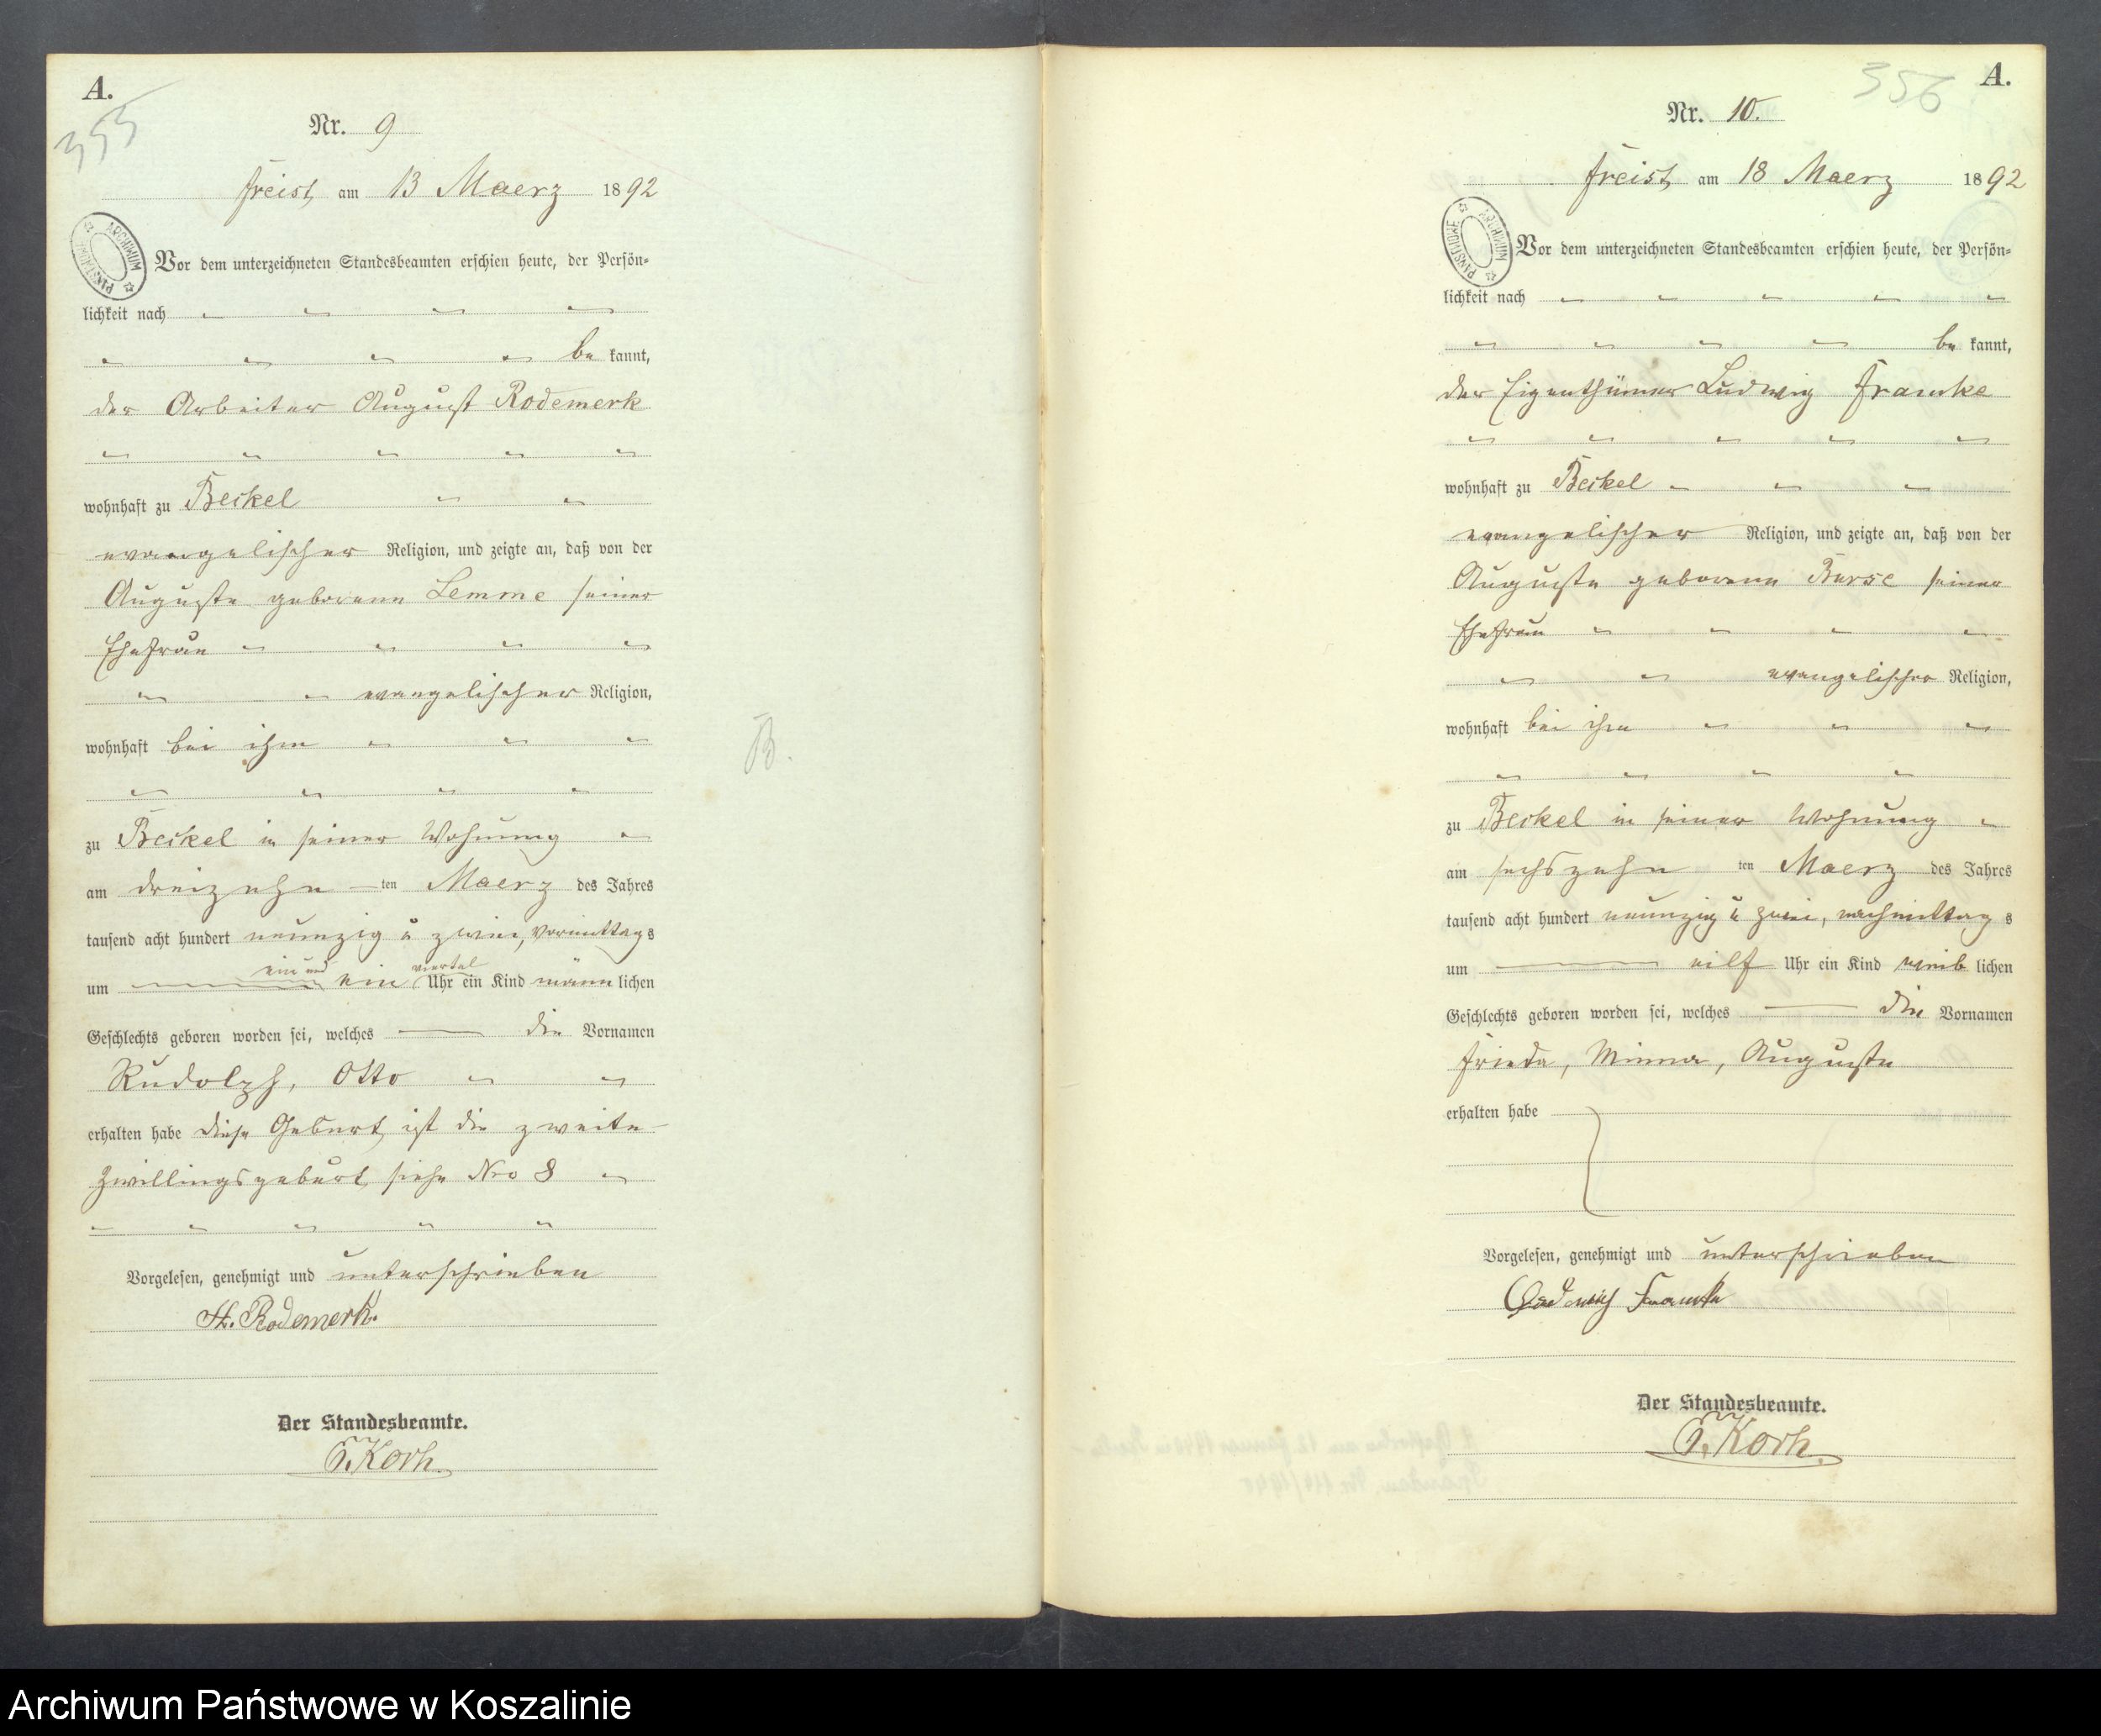 A.
355
Nr. 9
Freist, am 13 Maerz 1892
ARCHIWUM PAŃSTWOWE
Vor dem unterzeichneten Standesbeamten erschien heute, der Persön-
lichkeit nach
be kannt,
der Arbeiter August Rodemerk
wohnhaft zu Beckel
evangelischer Religion, und zeigte an, daß von der
Auguste geborenen Lemme seiner
Ehefrau
evangelischer Religion,
wohnhaft bei ihm
zu Beckel in seiner Wohnung
am dreizehn ten Maerz des Jahres
tausend acht hundert neunzig u zwei, Vormittags
ein und viertel
um ein Uhr ein Kind männ lichen
Geschlechts geboren worden sei, welches die Vornamen
Rudolph, Otto
erhalten habe diese Geburt ist die zweite
Zwillingsgeburt siehe Nro 8
Vorgelesen, genehmigt und unterschrieben
A. Rodemerk.
Der Standesbeamte.
Koch
B.
A.
356
Nr. 10.
Freist, am 18 Maerz 1892
ARCHIWUM PAŃSTWOWE
Vor dem unterzeichneten Standesbeamten erschien heute, der Persön-
lichkeit nach
be kannt,
der Eigenthümer Ludwig Francke
wohnhaft zu Beckel
evangelischer Religion, und zeigte an, daß von der
Auguste geborenen seiner
Ehefrau
evangelischer Religion,
wohnhaft bei ihm
zu Beckel in seiner Wohnung
am sechszehn ten Maerz des Jahres
tausend acht hundert neunzig u zwei, nachmittag s
um eilf Uhr ein Kind weib lichen
Geschlechts geboren worden sei, welches die Vornamen
Frieda, Minna, Auguste
erhalten habe
Vorgelesen, genehmigt und unterschrieben
Ludwig Francke
Der Standesbeamte.
Koch
Archiwum Państwowe w Koszalinie